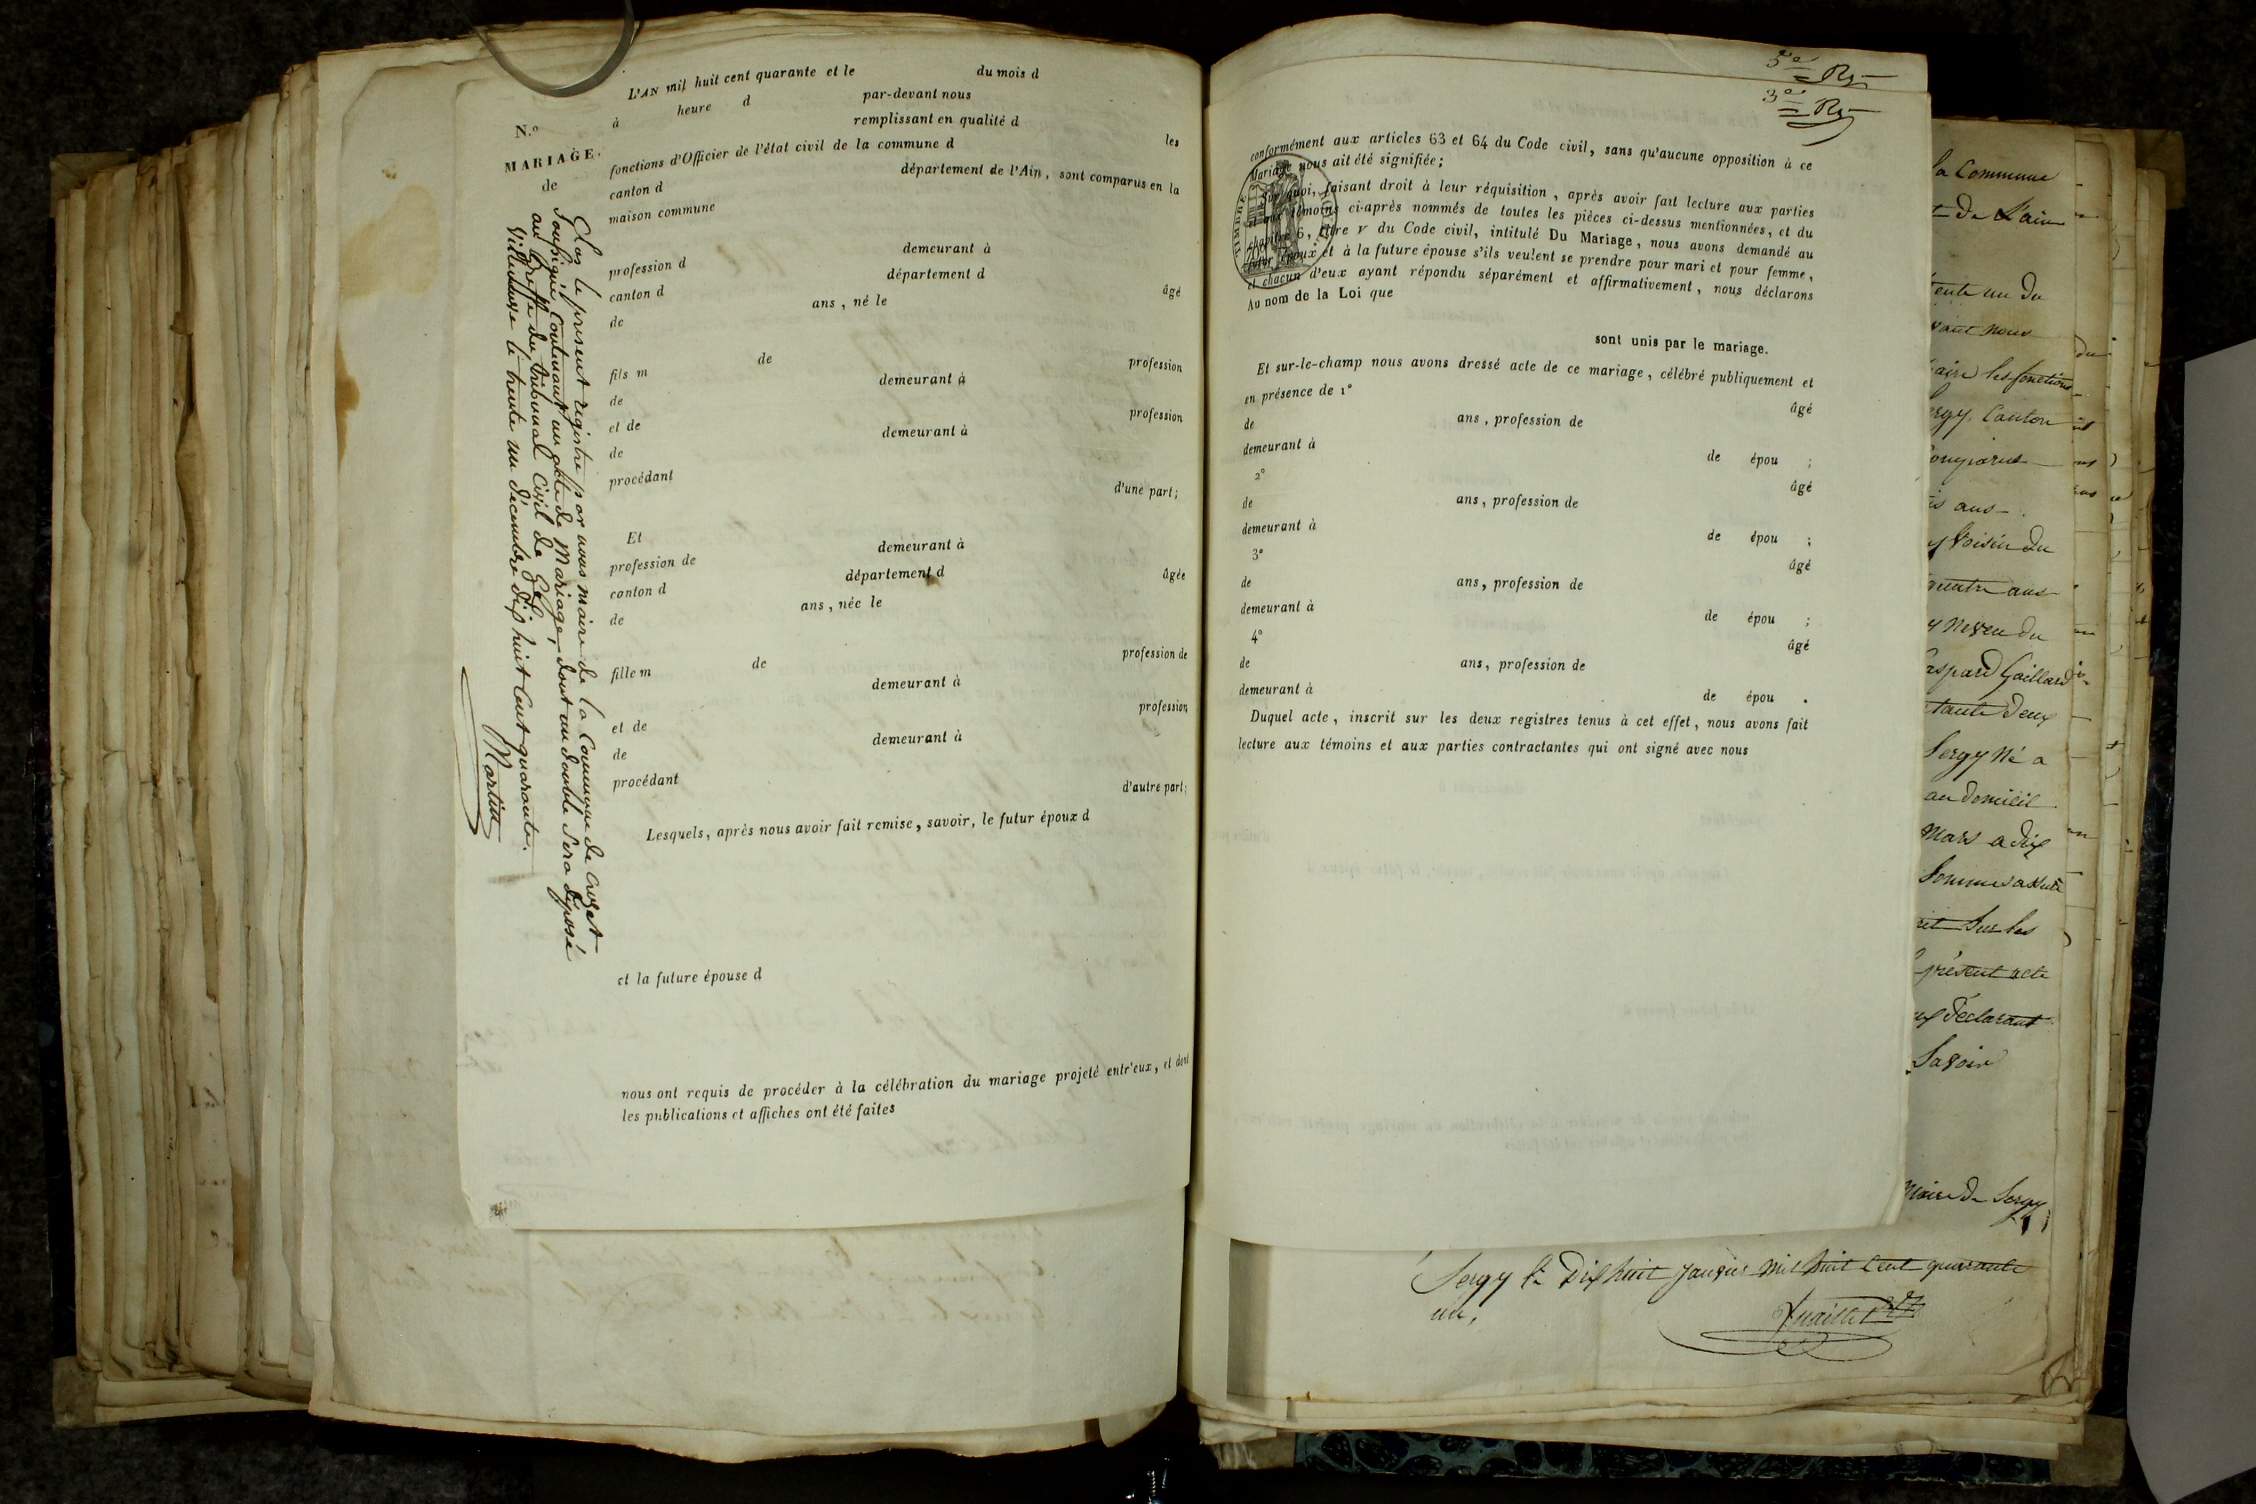 L'AN mil huit cent quarante et le du mois d
à heure d par-devant nous
remplissant en qualité d les
fonctions d'Officier de l'état civil de la commune d
canton d département de l'Ain, sont comparus en la
maison commune
N.°
MARIAGE.
de
Clos le présent registre par nous maire de la Commune de Crozet
Soussigné Contenant un acte de Mariage, dont un double Sera déposé
au Greffe du tribunal Civil de Gex
le trente un décembre dix huit Cent quarante.
Martin
profession d demeurant à
canton d département d âgé
de ans, né le
fils m de profession
de demeurant à
et de profession
de demeurant à
procédant d'une part;
Et
profession de demeurant à
canton d département d âgée
de ans, née le
fille m de profession de
demeurant à
et de profession
de demeurant à
procédant d'autre part;
Lesquels, après nous avoir fait remise, savoir, le futur époux d
et la future épouse d
nous ont requis de procéder à la célébration du mariage projeté entr'eux, et dont
les publications et affiches ont été faites
conformément aux articles 63 et 64 du Code civil, sans qu'aucune opposition à ce
Mariage nous ait été signifiée;
Sur quoi, faisant droit à leur réquisition, après avoir fait lecture aux parties
et aux témoins ci-après nommés de toutes les pièces ci-dessus mentionnées, et du
chapitre 6, titre V du Code civil, intitulé Du Mariage, nous avons demandé au
futur époux et à la future épouse s'ils veulent se prendre pour mari et pour femme,
et chacun d'eux ayant répondu séparément et affirmativement, nous déclarons
Au nom de la Loi que
sont unis par le mariage.
Et sur-le-champ nous avons dressé acte de ce mariage, célébré publiquement et
en présence de 1° âgé
de ans, profession de
demeurant à de épou ;
2° âgé
de ans, profession de
demeurant à de épou ;
3° âgé
de ans, profession de
demeurant à de épou ;
4° âgé
de ans, profession de
demeurant à de épou .
Duquel acte, inscrit sur les deux registres tenus à cet effet, nous avons fait
lecture aux témoins et aux parties contractantes qui ont signé avec nous
la Commune
de L'ain
un du
nous
les fonctions
Canton
ans
Voisin du
ans
neveu du
Gaillard
deux
Sergy Né a
au domicil
Mars a dix
Sur les
présent acte
déclarant
Savoir
Maire de Sergy
Sergy le Dix huit Janvier mil huit Cent quarante
un,